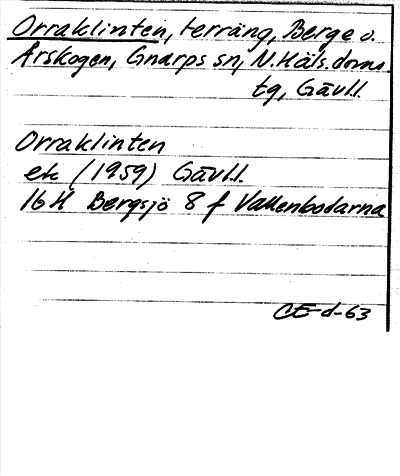 Orraklinten, terräng, Berge o.
Årskogen, Gnarps sn, N. Häls. doms
tg, Gävl.l.
Orraklinten
ek (1959) Gävl.l.
16H Bergsjö 8 f Vallenbodarna
CE-d-63